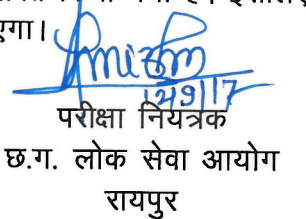 एगा।
12/9/17
परीक्षा नियत्रक
छ.ग. लोक सेवा आयोग
रायपुर